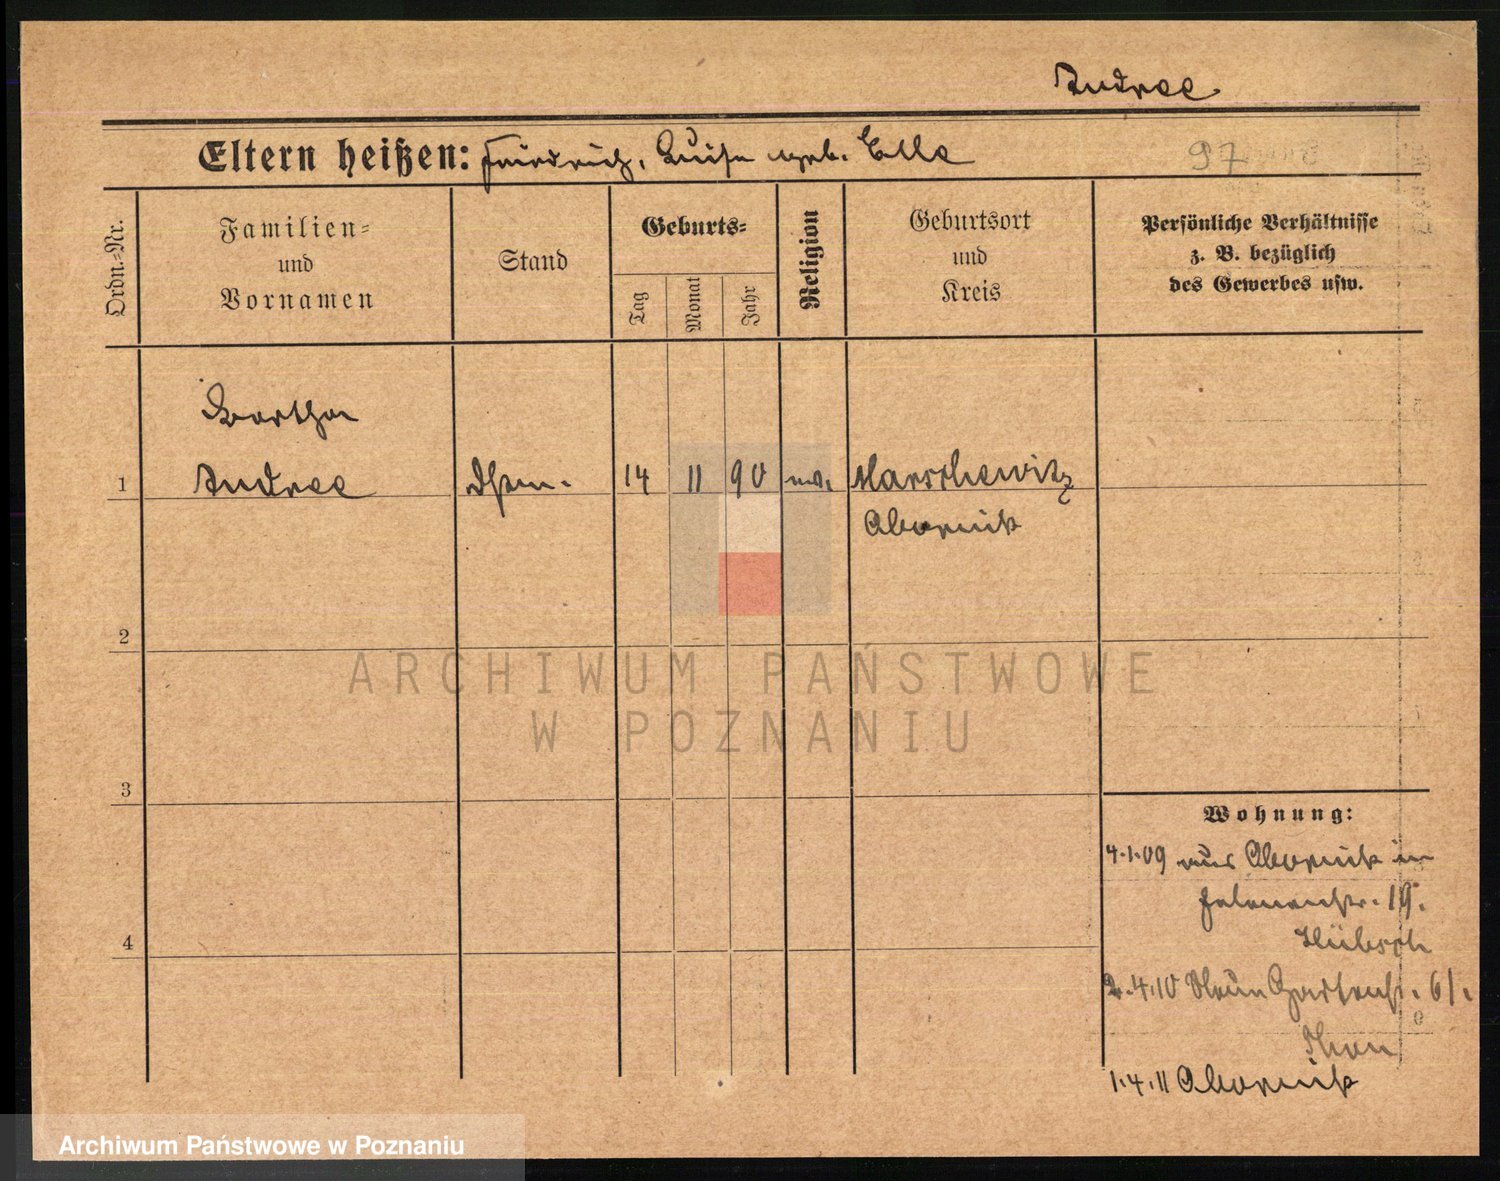 Andree
Eltern heißen: Friedrich, Luise geb. Elle
97
Ordn.-Nr.
Familien-
und
Vornamen
Stand
Geburts-
Tag
Monat
Jahr
Religion
Geburtsort
und
Kreis
Persönliche Verhältnisse
z. B. bezüglich
des Gewerbes usw.
Bertha
1 Andree 14 11 90 ev. Marschewitz
Obornik
2
3
4
Wohnung:
4.1.09 aus Obornik in
19.
Hübsch
2.4.10 Neue Gartenstr. 61.
1.4.11 Obornik
ARCHIWUM PAŃSTWOWE
W POZNANIU
Archiwum Państwowe w Poznaniu